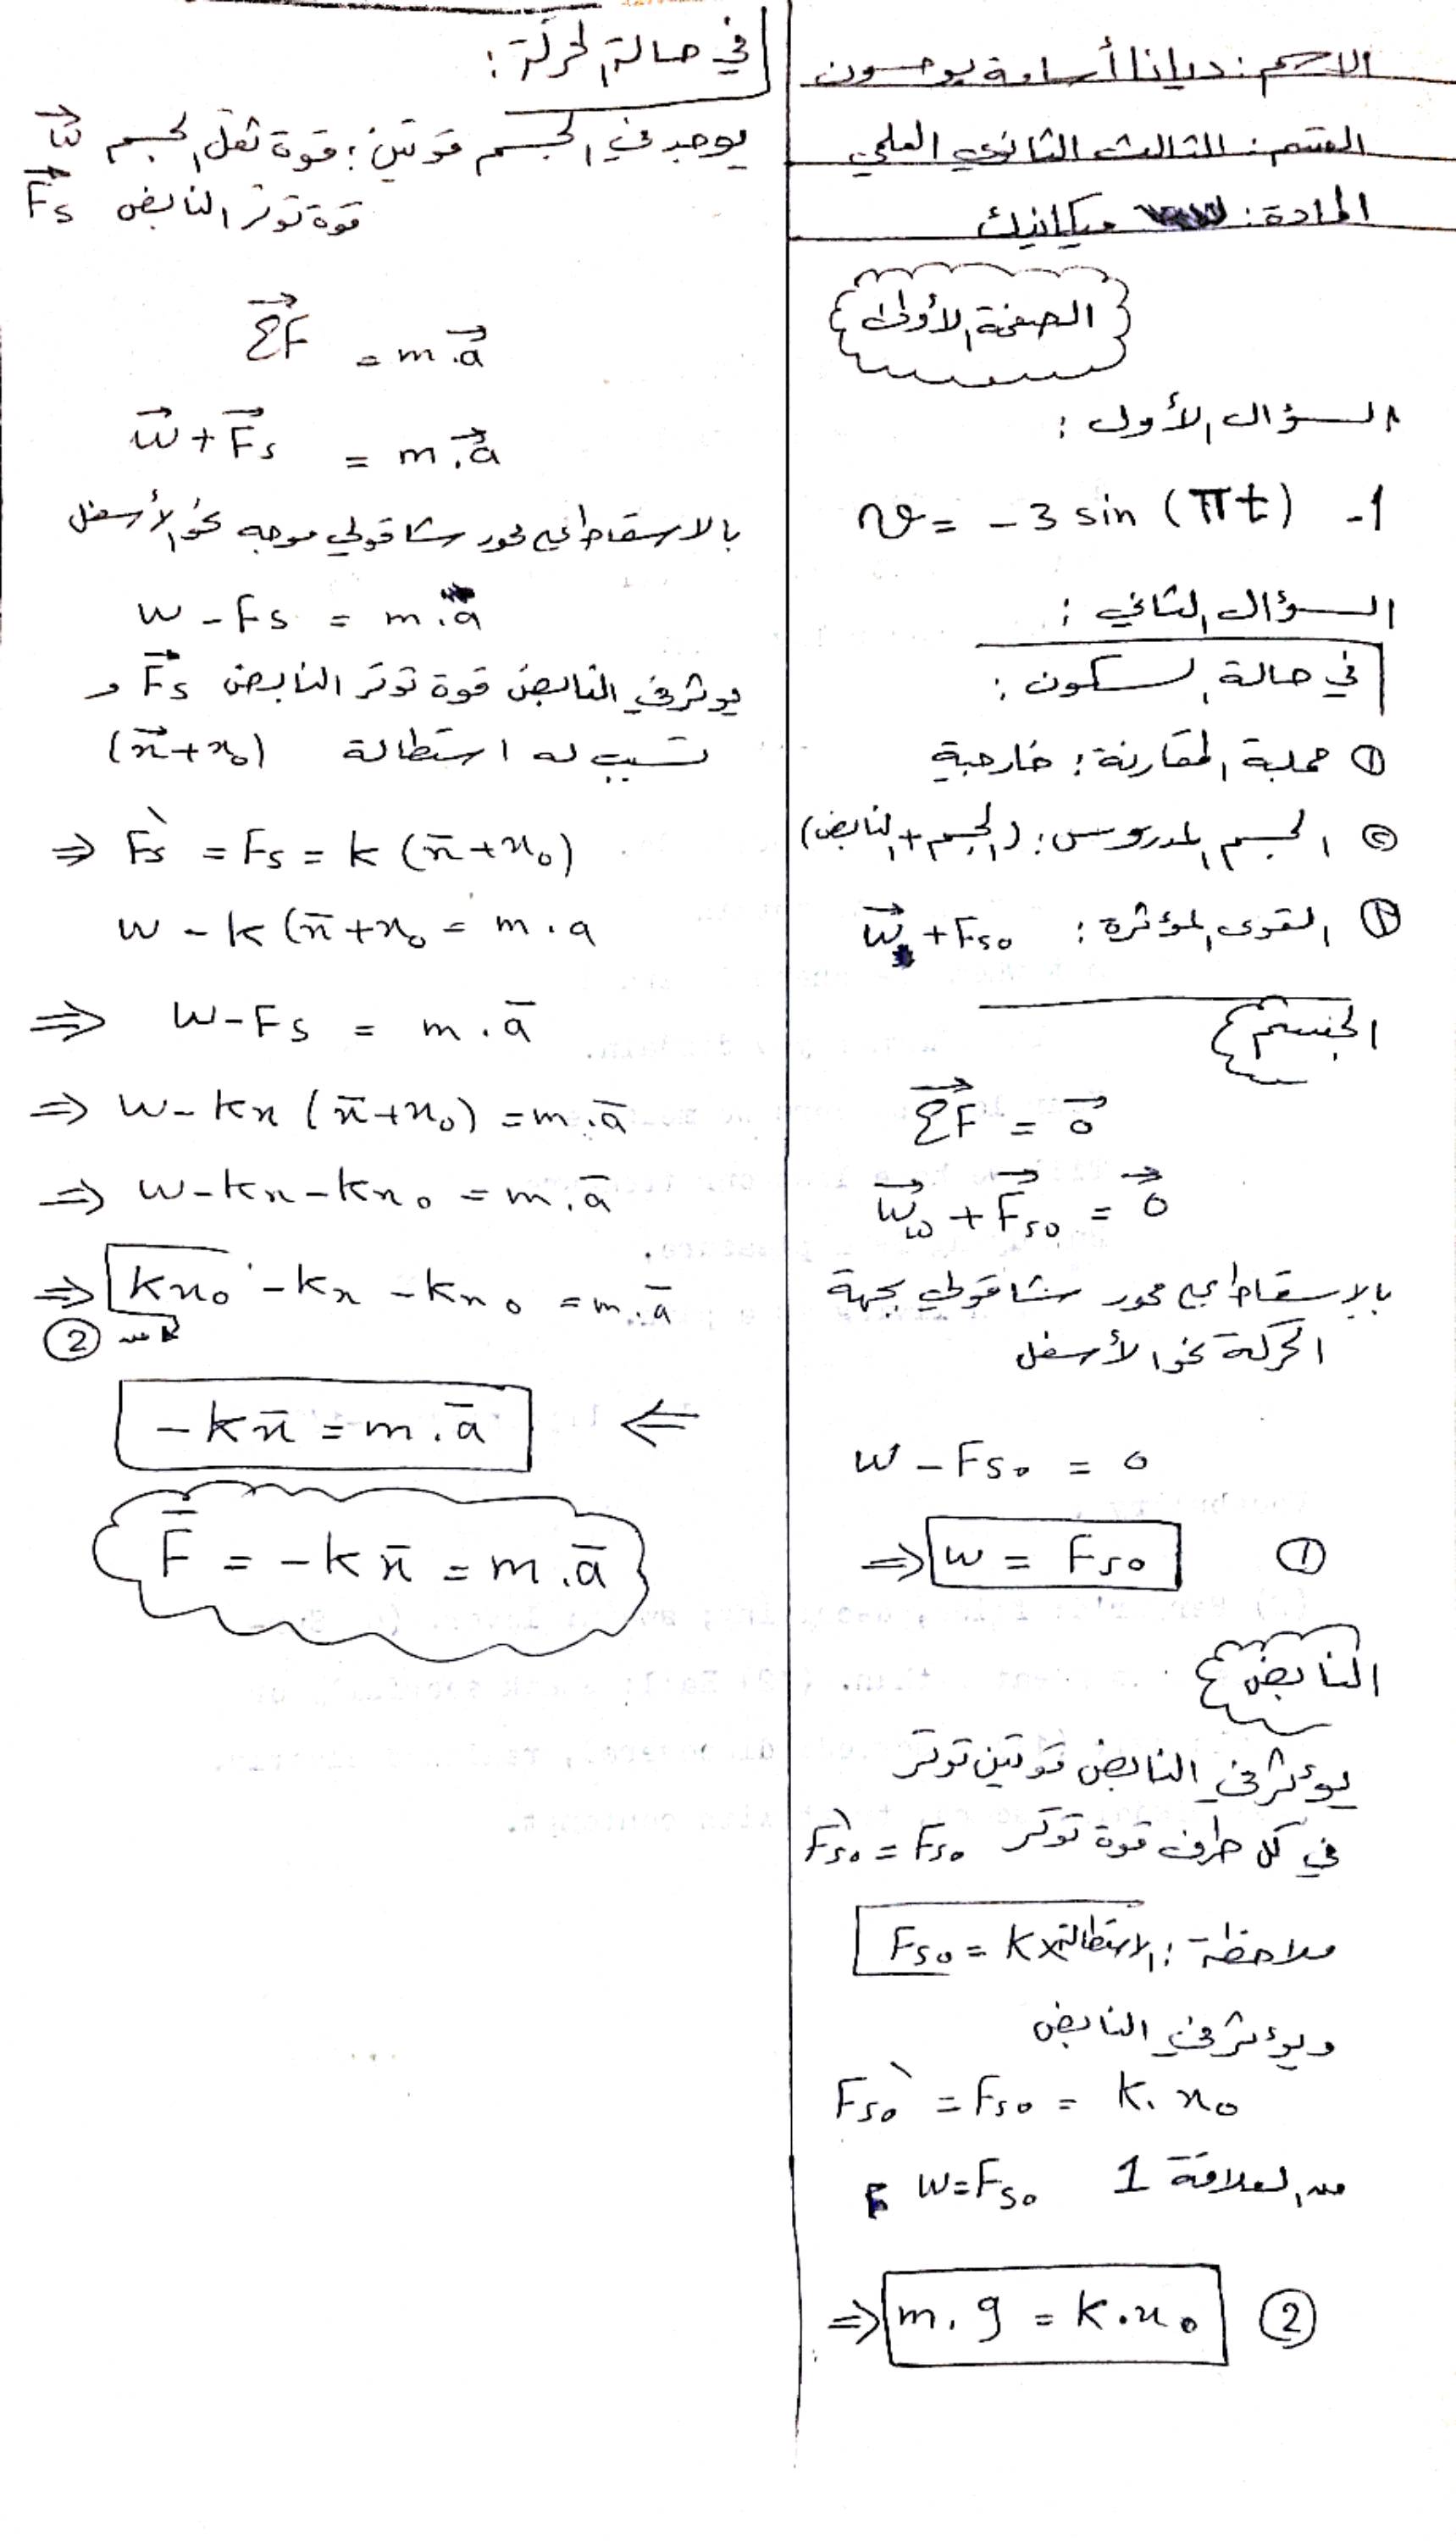 الاسم: ديانا أسامة بوحسون
القسم: الثالث الثانوي العلمي
المادة: ميكانيك
الصفحة الأولى
السؤال الأول:
1- v = -3 sin (πt)
السؤال الثاني:
في حالة السكون:
① جملة المقارنة: خارجية
② الجسم المدروس: (الجسم + النابض)
القوى المؤثرة: W⃗ + Fs₀
الجسم
ΣF⃗ = 0⃗
W⃗ + F⃗s₀ = 0⃗
بالإسقاط على محور شاقولي بجهة
الحركة نحو الأسفل
W - Fs₀ = 0
⇒ W = Fs₀ ①
النابض
يؤثر في النابض قوتين توتر
في كل طرف قوة توتر F's₀ = Fs₀
ملاحظة: Fs₀ = K × الاستطالة
ويؤثر في النابض
Fs₀' = Fs₀ = K . x₀
من العلاقة 1 W = Fs₀
⇒ m . g = K . x₀ ②
في حالة الحركة:
يوجد في الجسم قوتين: قوة ثقل الجسم W⃗
قوة توتر النابض F⃗s
ΣF⃗ = m . a⃗
W⃗ + F⃗s = m . a⃗
بالاسقاط على محور شاقولي موجه نحو الأسفل
W - Fs = m . a
يوثر في النابض قوة توتر النابض F⃗s و
تسبب له استطالة (x̄ + x₀)
⇒ Fs' = Fs = k (x̄ + x₀)
W - k (x̄ + x₀ = m . a
⇒ W - Fs = m . ā
⇒ W - kx (x̄ + x₀) = m . ā
⇒ W - kx - kx₀ = m . ā
⇒ kx₀ - kx - kx₀ = m . ā
من ②
⇐ - k x̄ = m . ā
F̄ = - k x̄ = m . ā